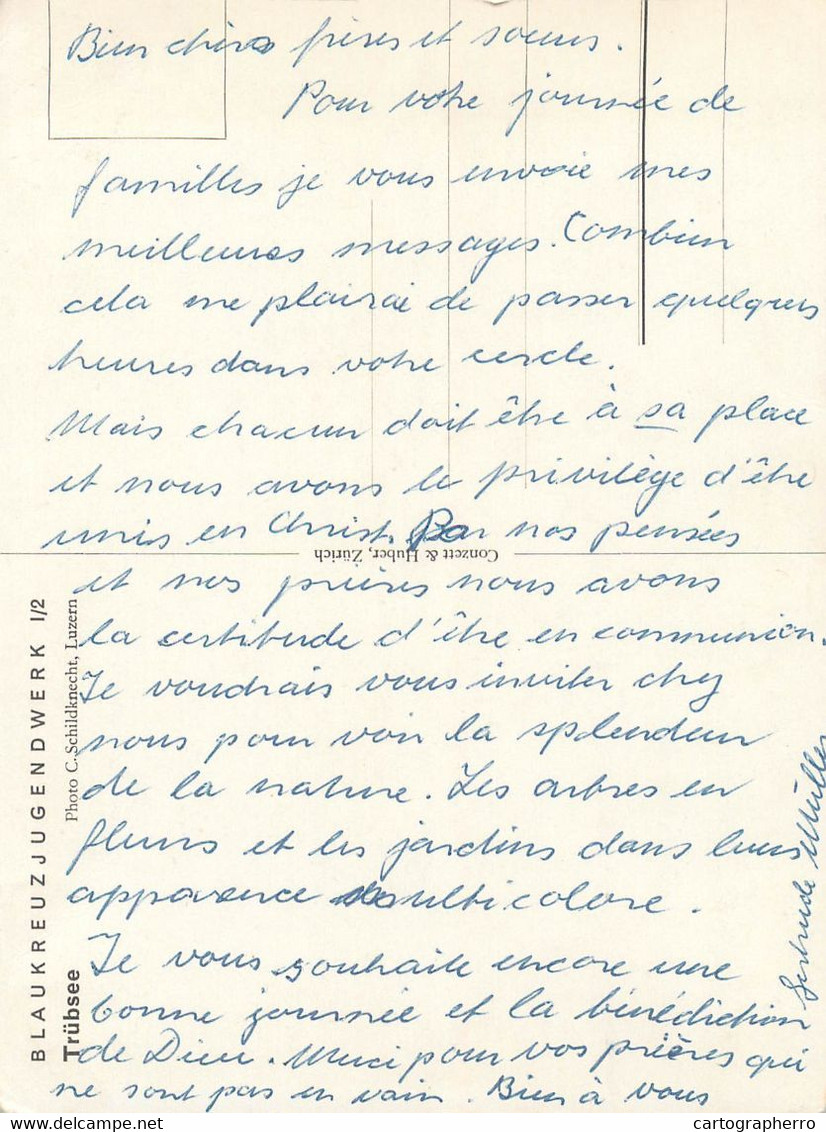 Bien chers frères et soeurs.
Pour votre journée de
familles je vous envoie mes
meilleures messages. Combien
cela me plairai de passer quelques
heures dans votre cercle.
Mais chacun doit être à sa place
et nous avons le privilège d'être
unis en Christ. Par nos pensées
et nos prières nous avons
la certitude d'être en communion.
Je voudrais vous inviter chez
nous pour voir la splendeur
de la nature. Les arbres en
fleurs et les jardins dans leurs
apparence multicolore.
Je vous souhaite encore une
bonne journée et la bénédiction
de Dieu. Merci pour vos prières qui
ne sont pas en vain. Bien à vous
Gertrude Müller
Conzett & Huber, Zürich
BLAUKREUZJUGENDWERK 1/2
Trübsee
Photo C. Schildknecht, Luzern
cartographerro